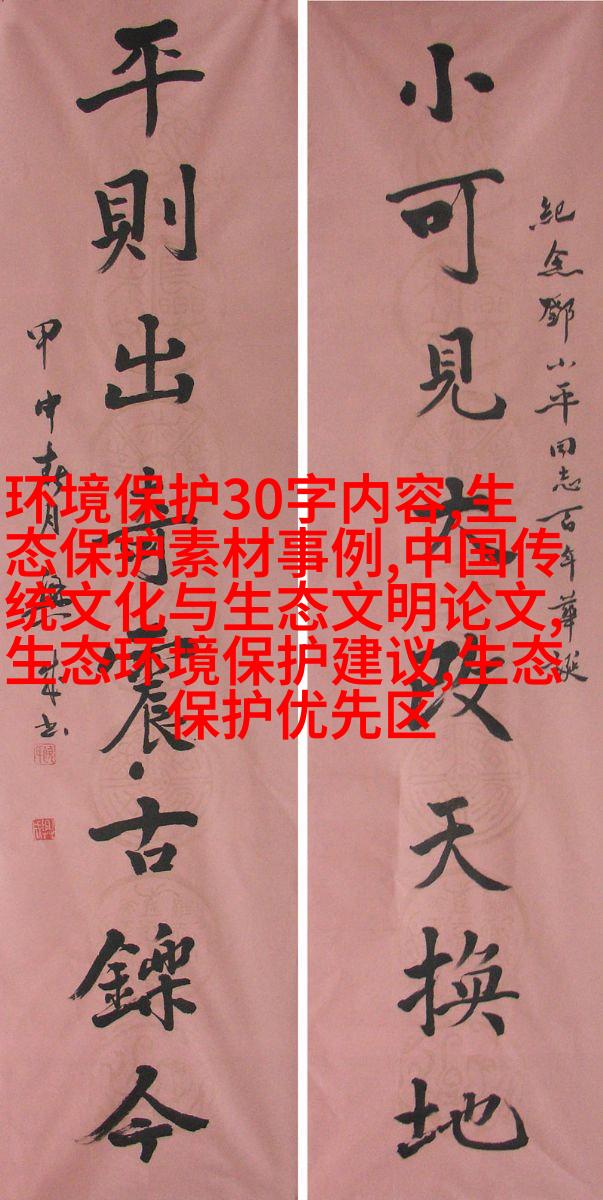 小可見大改天換地
紀念鄧小平同志百年華誕
平則出奇震古鑠今
甲申春月
环境保护30字内容,生
态保护素材事例,中国传
统文化与生态文明论文,
生态环境保护建议,生态
保护优先区